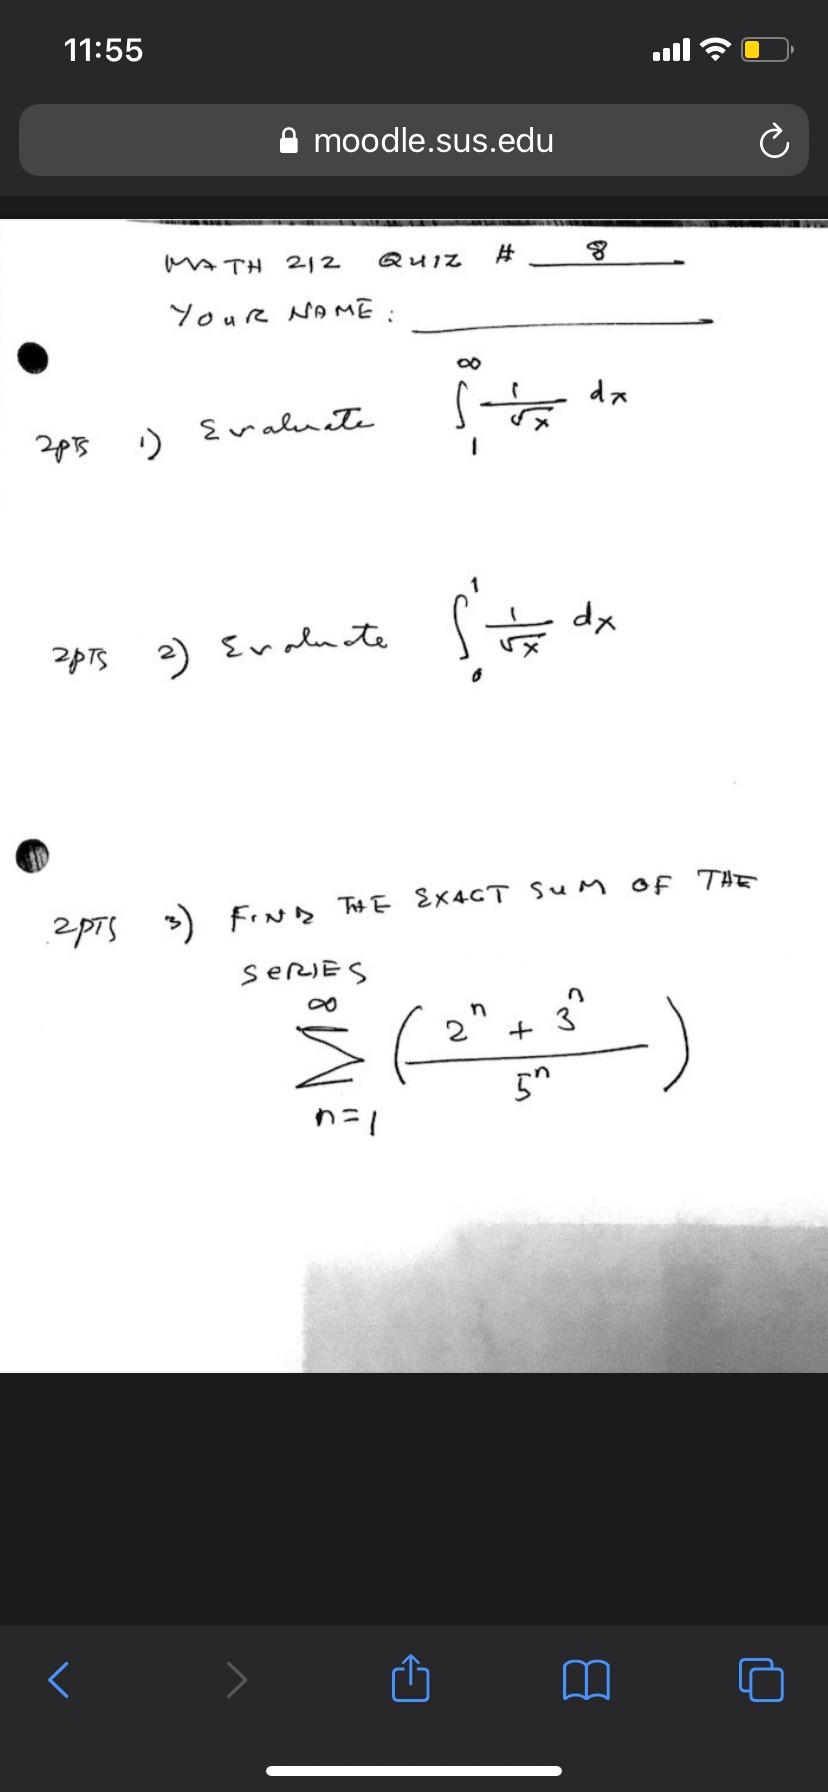 11:55
moodle.sus.edu
MATH 212 QUIZ # 8
YOUR NAME:
2pts 1) Evaluate ∫₁^∞ 1/√x dx
2pts 2) Evaluate ∫₀¹ 1/√x dx
2pts 3) FIND THE EXACT SUM OF THE
SERIES
∞
∑ ( (2ⁿ + 3ⁿ) / 5ⁿ )
n=1